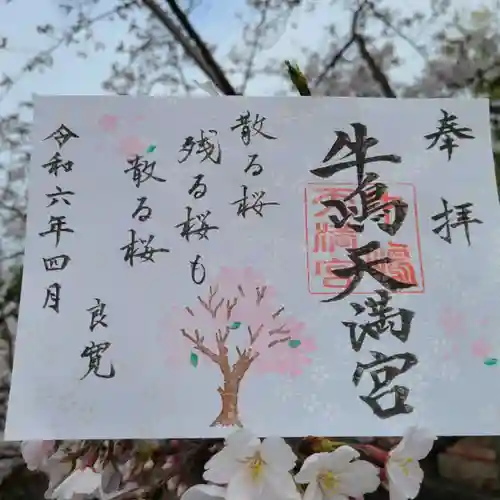 奉拝
牛嶋天満宮
天満宮
散る桜
残る桜も
散る桜
良寛
令和六年四月